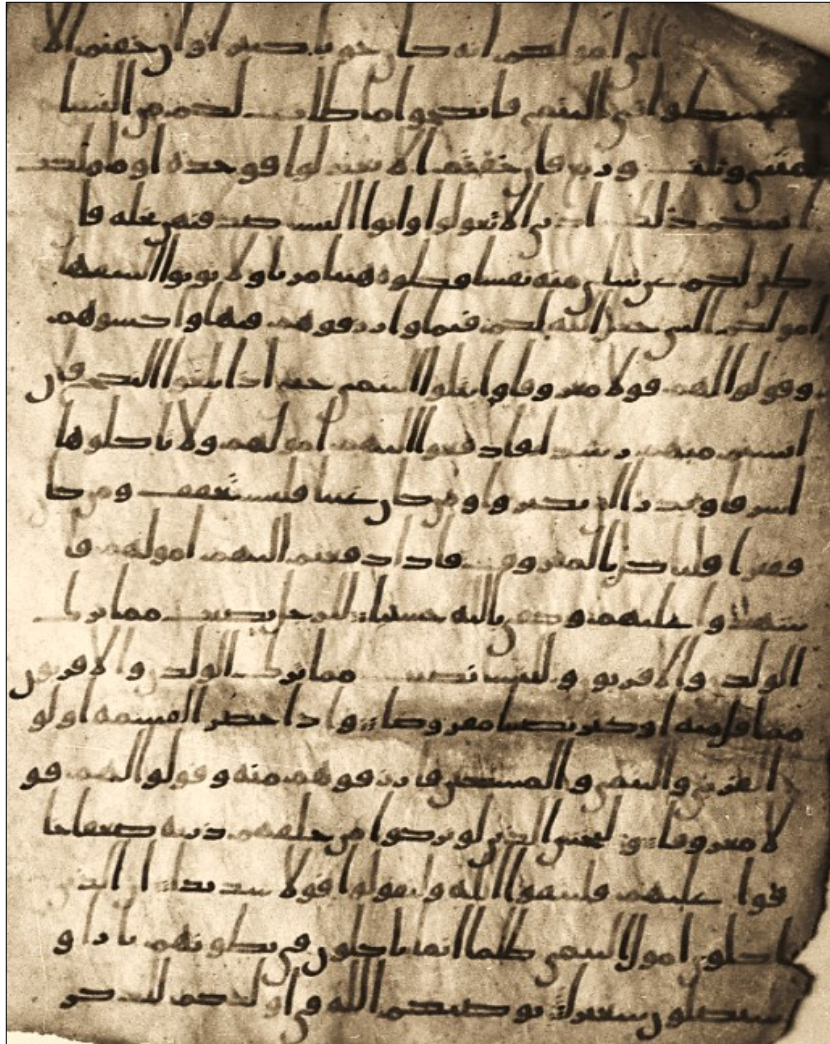 الى امولكم انه كان حوبا كبيرا وان خفتم الا
تقسطوا فى اليتمى فانكحوا ما طاب لكم من النسا
مثنى وثلث وربع فان خفتم الا تعدلوا فوحده او ما ملكت
ايمنكم ذلك ادنى الا تعولوا واتوا النسا صدقتهن نحله فا
ن طبن لكم عن شاى منه نفسا فكلوه هنيا مريا ولا توتوا السفها
امولكم التى جعل الله لكم قيما وارزقوهم فيها واكسوهم
وقولوا لهم قولا معروفا وابتلوا اليتمى حتى اذا بلغوا النكح فان
انستم منهم رشدا فادفعوا اليهم امولهم ولا تاكلوها
اسرفا وبدرا ان يكبروا ومن كان غنيا فليستعفف ومن كان
فقيرا فلياكل بالمعروف فاذا دفعتم اليهم امولهم فا
شهدوا عليهم وكفى بالله حسيبا للرجل نصيب مما ترك
الولدن والاقربون وللنسا نصيب مما ترك الولدن والاقربون
مما قل منه او كثر نصيبا مفروضا واذا حضر القسمه اولو
ا القربى واليتمى والمسكين فارزقوهم منه وقولوا لهم قو
لا معروفا وليخش الذين لو تركوا من خلفهم ذريه ضعفا خا
فوا عليهم فليتقوا الله وليقولوا قولا سديدا ان الذين
ياكلون امول اليتمى ظلما انما ياكلون فى بطونهم نارا و
سيصلون سعيرا يوصيكم الله فى اولدكم للذكر